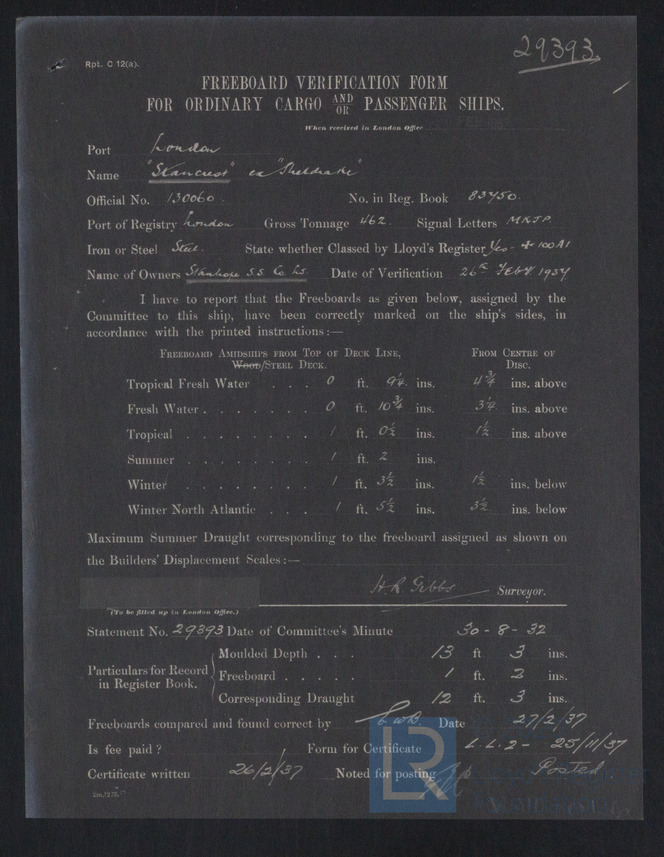 29393
Rpt. C 12(a).
FREEBOARD VERIFICATION FORM
FOR ORDINARY CARGO AND OR PASSENGER SHIPS.
When received in London Office
Port London
Name "Stancrest" ex "Sheldrake"
Official No. 130060. No. in Reg. Book 83450.
Port of Registry London Gross Tonnage 462. Signal Letters MKJP.
Iron or Steel Steel. State whether Classed by Lloyd's Register Yes - + 100A1
Name of Owners Stanhope S.S. Co Ld. Date of Verification 26th Feby 1937
I have to report that the Freeboards as given below, assigned by the
Committee to this ship, have been correctly marked on the ship's sides, in
accordance with the printed instructions:—
Freeboard Amidships from Top of Deck Line, From Centre of
Wood/Steel Deck. Disc.
Tropical Fresh Water . . . 0 ft. 9¼ ins. 4¾ ins. above
Fresh Water . . . . . . . 0 ft. 10¾ ins. 3¼ ins. above
Tropical . . . . . . . . 1 ft. 0½ ins. 1½ ins. above
Summer . . . . . . . . 1 ft. 2 ins.
Winter . . . . . . . . 1 ft. 3½ ins. 1½ ins. below
Winter North Atlantic . . . 1 ft. 5½ ins. 3½ ins. below
Maximum Summer Draught corresponding to the freeboard assigned as shown on
the Builders' Displacement Scales:—
H R Gibbs Surveyor.
(To be filled up in London Office.)
Statement No. 29393 Date of Committee's Minute 30-8-32
Moulded Depth . . . 13 ft 3 ins.
Particulars for Record in Register Book. Freeboard . . . . . 1 ft. 2 ins.
Corresponding Draught 12 ft. 3 ins.
Freeboards compared and found correct by Date 27/2/37
Is fee paid? Form for Certificate L.L.2 - 25/11/37
Certificate written 26/2/37 Noted for posting Posted
LR